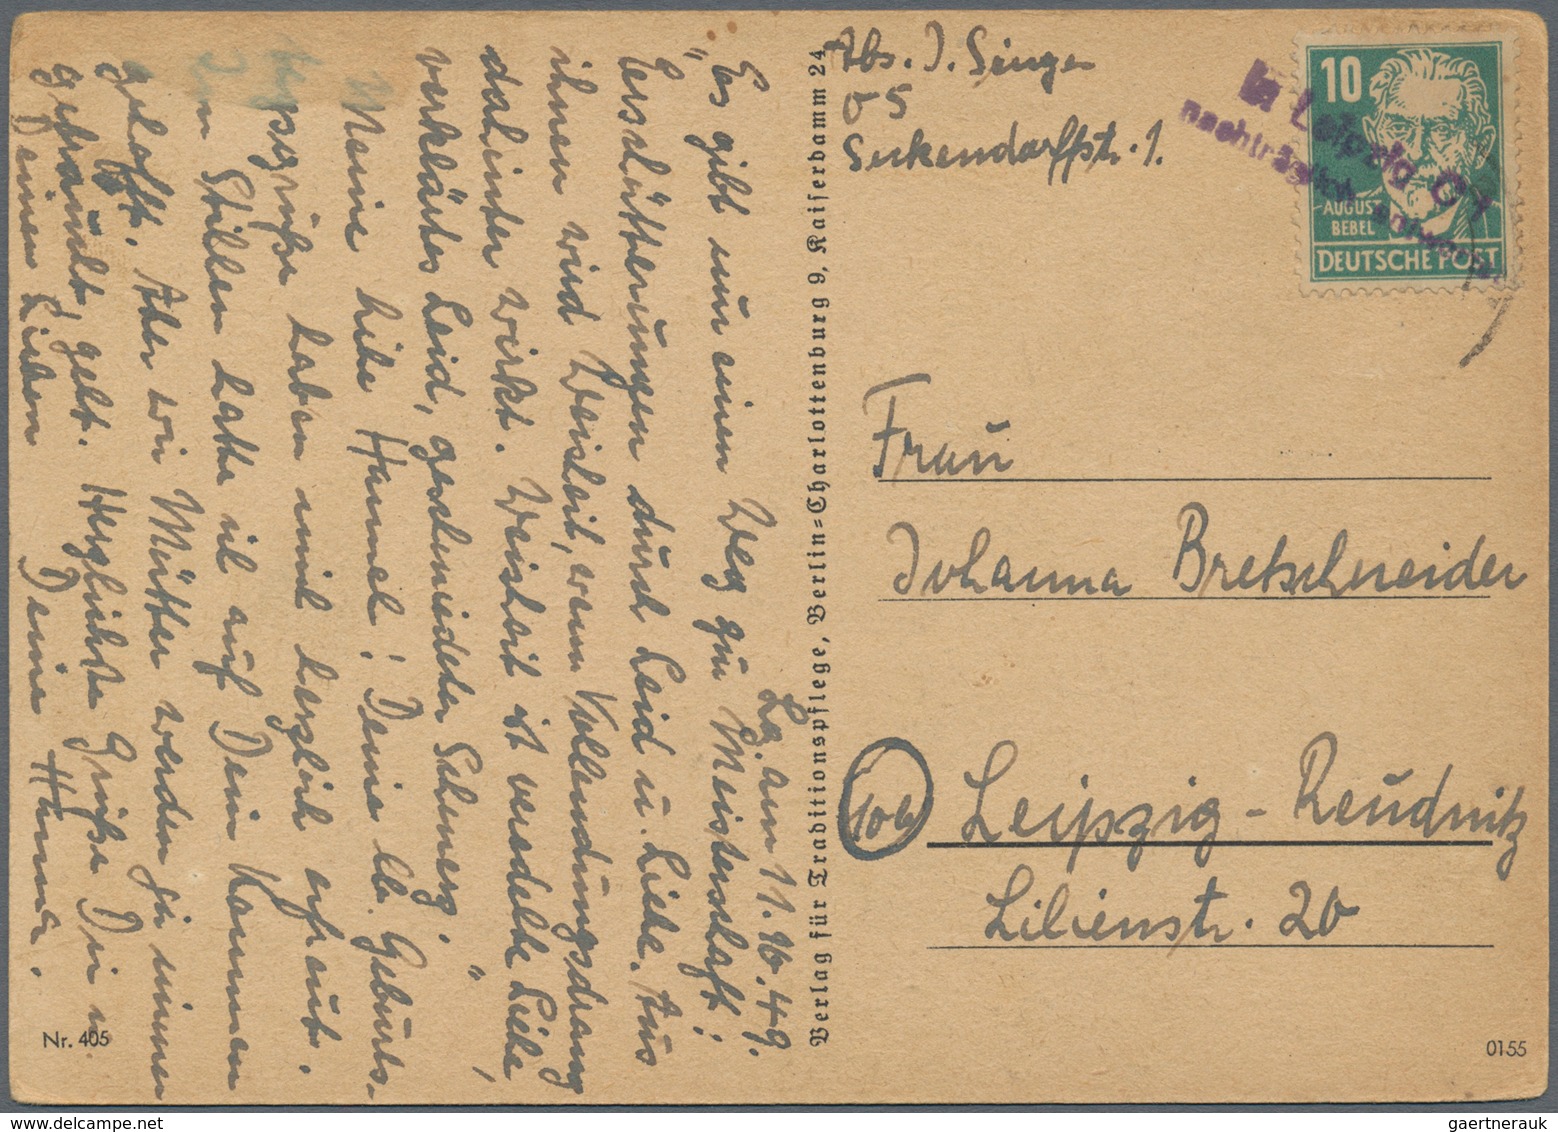 Lg. am 11.10.49.
"Es gibt nur einen Weg zur Meisterschaft:
Erschütterungen durch Leid u. Liebe. Aus
ihnen wird Weisheit, wenn Vollendungsdrang
dahinter wirkt. Weisheit ist veredelte Liebe,
verklärtes Leid, geschmiedeter Schmerz."
Meine liebe Hannel! Deine lb. Geburts-
grüße haben mich herzlich erfreut.
Im Stillen hatte ich auf Dein Kommen
gehofft. Aber wir Mütter werden ja immer
gebraucht, gelt. Herzlichste Grüße Dir u.
Deinen Lieben Deine Hanna.
Nr. 405
Verlag für Traditionspflege, Berlin=Charlottenburg 9, Kaiserdamm 24
Abs. J. Singer
O 5
Seckendorffstr. 1.
10
AUGUST
BEBEL
DEUTSCHE POST
In Leipzig C 1
nachträglich entwertet
Frau
Johanna Bretschneider
Leipzig-Reudnitz
Lilienstr. 20
0155
gaertnerauk @ delcampe.net